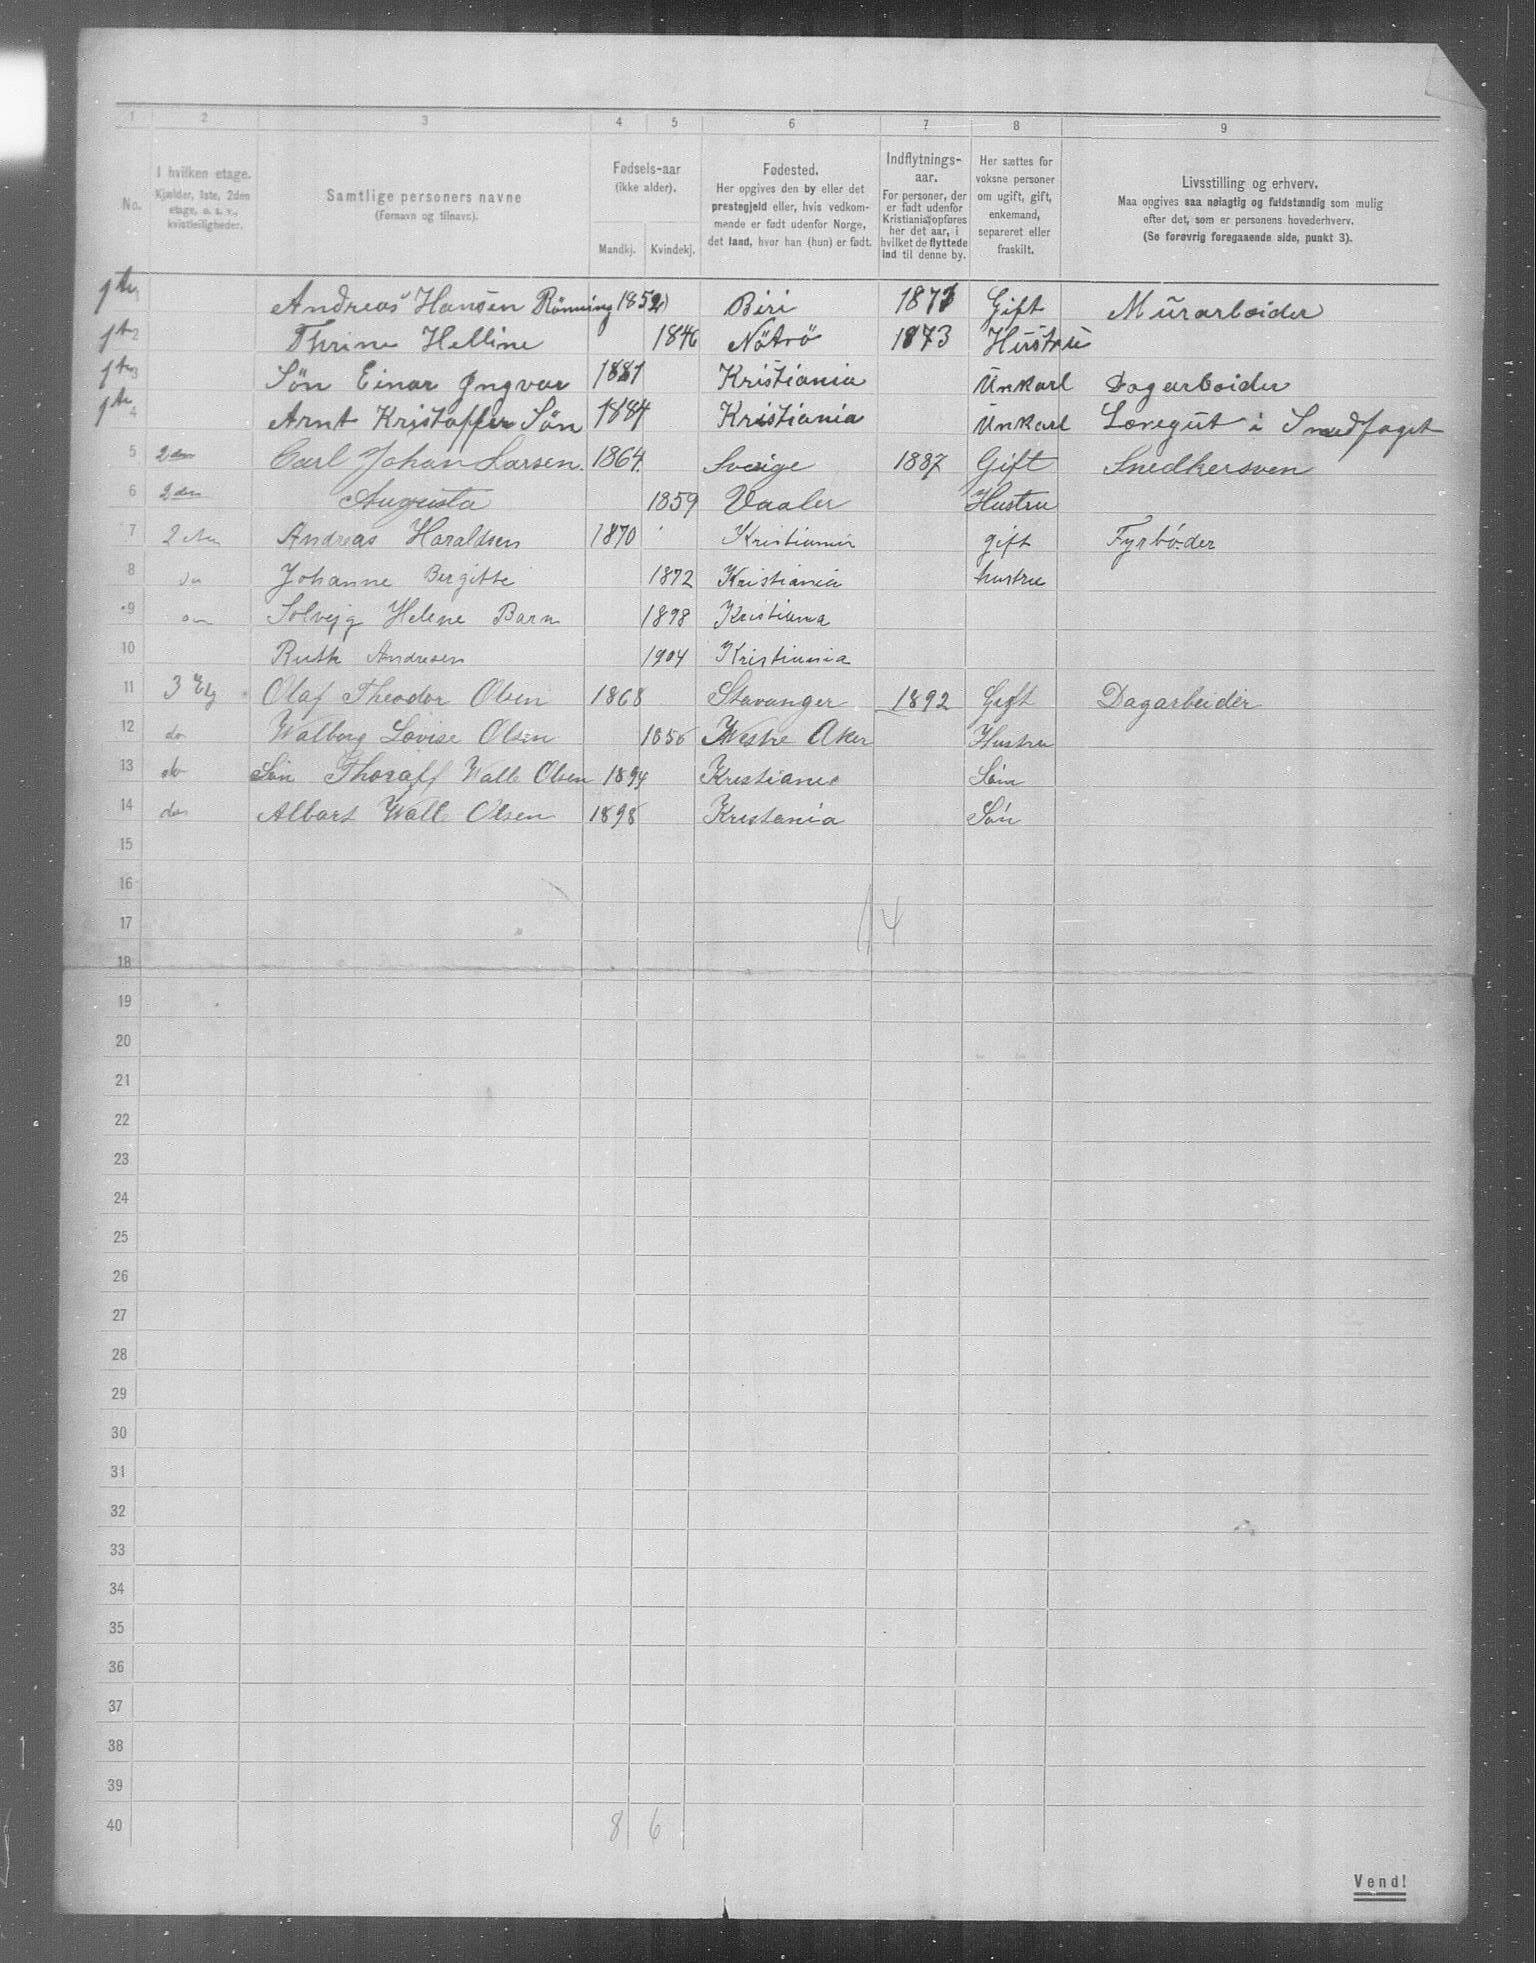 1 2 3 4 5 6 7 8 9
No.
I hvilken etage.
Kjælder, 1ste, 2den
etage, o. s. v.,
kvistleiligheder.
Samtlige personers navne
(Fornavn og tilnavn).
Fødsels-aar
(ikke alder).
Mandkj. Kvindekj.
Fødested.
Her opgives den by eller det
prestegjeld eller, hvis vedkom-
mende er født udenfor Norge,
det land, hvor han (hun) er født.
Indflytnings-
aar.
For personer, der
er født udenfor
Kristiania, opføres
her det aar, i
hvilket de flyttede
ind til denne by.
Her sættes for
voksne personer
om ugift, gift,
enkemand,
separeret eller
fraskilt.
Livsstilling og erhverv.
Maa opgives saa nøiagtig og fuldstændig som mulig
efter det, som er personens hovederhverv.
(Se forøvrig foregaaende side, punkt 3).
1 1ste Andreas Hansen Rönning 1852 Biri 1871 Gift Mürarbeider
2 1ste Thrine Helline 1846 Nötrö 1873 Hüstrü
3 1ste Sön Einar Ingvar 1881 Kristiania Ünkarl Dagarbeider
4 1ste Arnt Kristoffer Sön 1884 Kristiania Ünkarl Læregüt i Smedfaget
5 2den Carl Johan Larsen. 1864 Sverige 1887 Gift Snedkersven
6 2den Augusta 1859 Vaaler Hustru
7 2den Andreas Haraldsen 1870 Kristiania gift Fyrbøder
8 Johanne Bergitte 1872 Kristiania hustru
9 Solvejg Helene Barn 1898 Kristiania
10 Ruth Andresen 1904 Kristiania
11 3 Etg Olaf Theodor Olsen 1868 Stavanger 1892 Gift Dagarbeider
12 do Walborg Lovise Olsen 1856 Westre Aker Hustru
13 do Sön Thoralf Wall Olsen 1894 Kristiania Sön
14 do Albart Wall Olsen 1898 Kristania Søn
15
16
17 14
18
19
20
21
22
23
24
25
26
27
28
29
30
31
32
33
34
35
36
37
38
39
40 8 6
Vend!